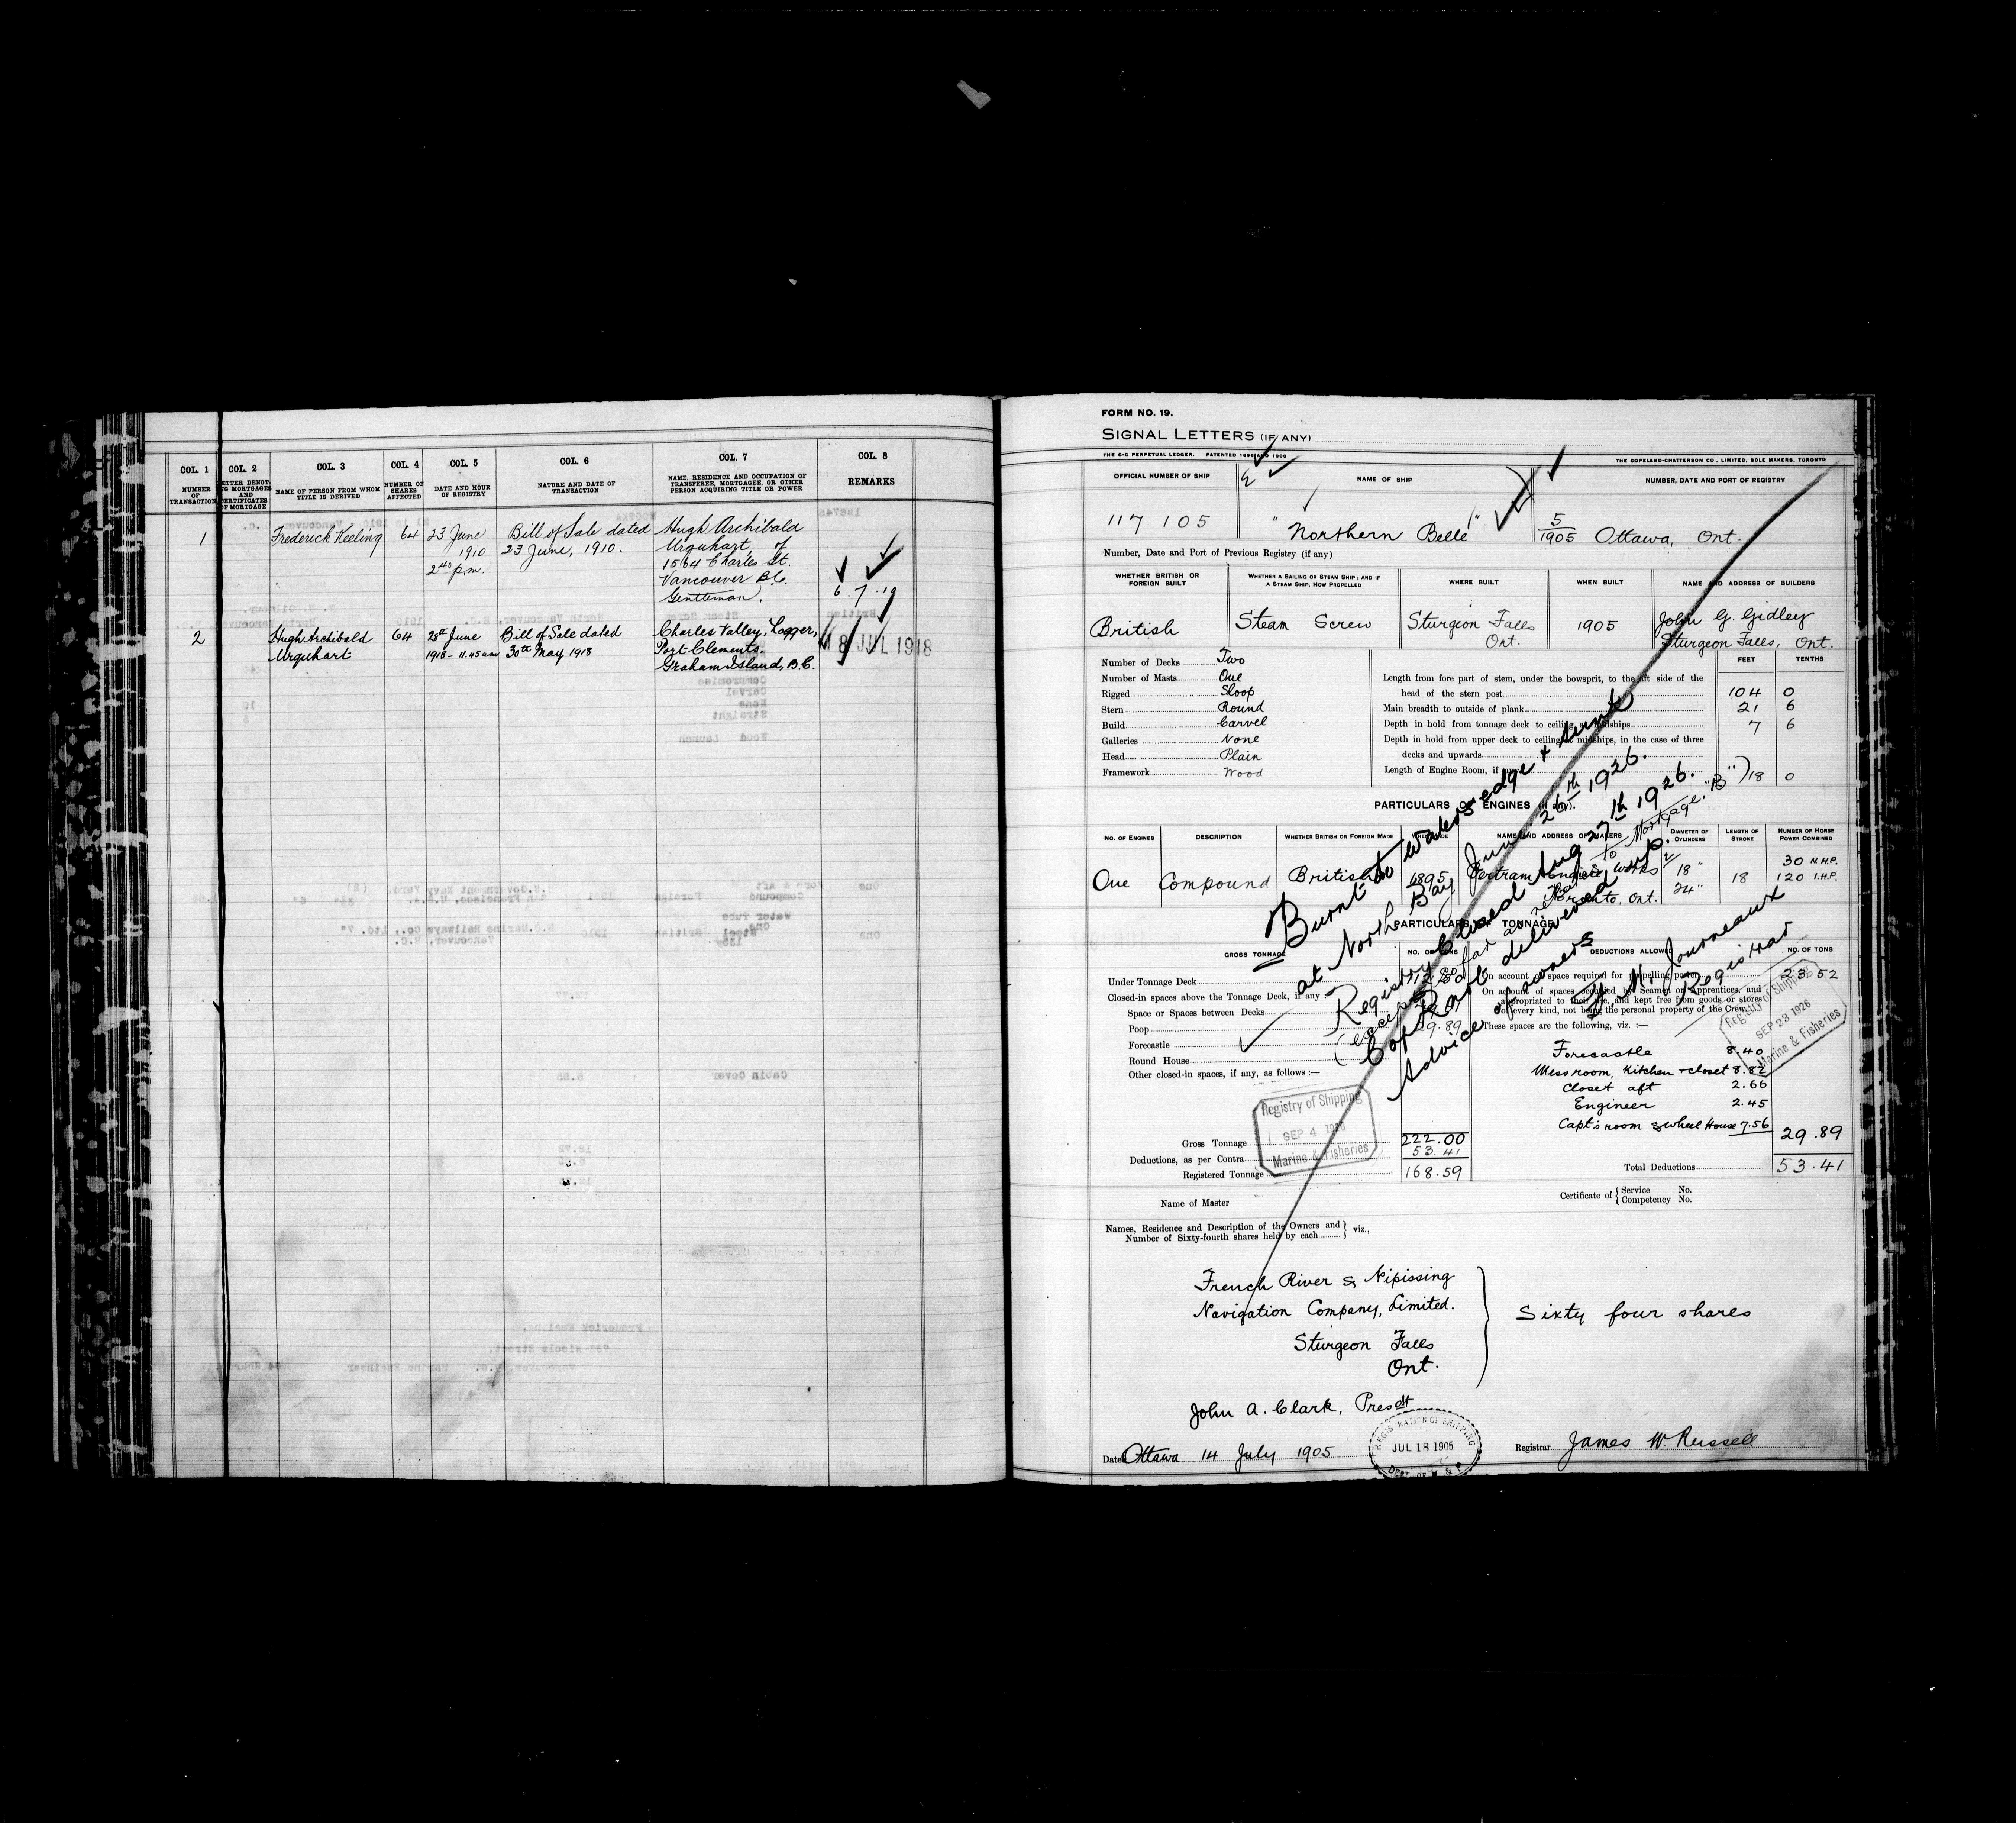 COL. 1
NUMBER OF TRANSACTION
COL. 2
LETTER DENOTING MORTGAGES AND CERTIFICATES OF MORTGAGE
COL. 3
NAME OF PERSON FROM WHOM TITLE IS DERIVED
COL. 4
NUMBER OF SHARES AFFECTED
COL. 5
DATE AND HOUR OF REGISTRY
COL. 6
NATURE AND DATE OF TRANSACTION
COL. 7
NAME, RESIDENCE AND OCCUPATION OF TRANSFEREE, MORTGAGEE, OR OTHER PERSON ACQUIRING TITLE OR POWER
COL. 8
REMARKS
1 Frederick Keeling 64 23 June Bill of Sale dated Hugh Archibald
1910 23 June, 1910. Urquhart, of
2 40 p.m. 1564 Charles St.
Vancouver B.C.
Gentleman. 6.7.10
2 Hugh Archibald 64 25th June Bill of Sale dated Charles Valley, Logger,
Urquhart 1918 - 11.45 a.m. 30th May 1918 Port Clements
Graham Island, B.C.
18 JUL 1918
FORM NO. 19.
SIGNAL LETTERS (IF ANY)
THE C-C PERPETUAL LEDGER. PATENTED 1896 AND 1900
THE COPELAND-CHATTERSON CO., LIMITED, SOLE MAKERS, TORONTO
OFFICIAL NUMBER OF SHIP NAME OF SHIP NUMBER, DATE AND PORT OF REGISTRY
117 105 "Northern Belle" 5/1905 Ottawa, Ont.
Number, Date and Port of Previous Registry (if any)
WHETHER BRITISH OR FOREIGN BUILT
WHETHER A SAILING OR STEAM SHIP; AND IF A STEAM SHIP, HOW PROPELLED
WHERE BUILT
WHEN BUILT
NAME AND ADDRESS OF BUILDERS
British Steam Screw Sturgeon Falls 1905 John G. Gidley
Ont. Sturgeon Falls, Ont.
FEET TENTHS
Number of Decks Two
Number of Masts One
Rigged Sloop
Stern Round
Build Carvel
Galleries None
Head Plain
Framework Wood
Length from fore part of stem, under the bowsprit, to the aft side of the
head of the stern post 104 0
Main breadth to outside of plank 21 6
Depth in hold from tonnage deck to ceiling at midships 7 6
Depth in hold from upper deck to ceiling at midships, in the case of three
decks and upwards
Length of Engine Room, if any 18 0
PARTICULARS OF ENGINES (if any).
NO. OF ENGINES DESCRIPTION WHETHER BRITISH OR FOREIGN MADE WHEN MADE NAME AND ADDRESS OF MAKERS DIAMETER OF CYLINDERS LENGTH OF STROKE NUMBER OF HORSE POWER COMBINED
One Compound British 1895 Bertram Engine Works 18" 18 30 N.H.P.
Toronto, Ont. 24" 120 I.H.P.
Burnt to waters edge & sunk
at North Bay June 26th 1926.
Registry closed Aug 27th 1926.
(except so far as relates to Mortgage "B")
Cof R not delivered up.
Advice of owners
F. M. Journeaux
Registrar
PARTICULARS OF TONNAGE
GROSS TONNAGE NO. OF TONS DEDUCTIONS ALLOWED NO. OF TONS
Under Tonnage Deck
Closed-in spaces above the Tonnage Deck, if any:
Space or Spaces between Decks
Poop
Forecastle
Round House
Other closed-in spaces, if any, as follows:—
On account of space required for propelling power 23 52
On account of spaces occupied by Seamen or Apprentices, and
appropriated to their use, and kept free from goods or stores
of every kind, not being the personal property of the Crew
These spaces are the following, viz.:—
Forecastle 8.40
Messroom, Kitchen & closet 8.82
Closet aft 2.66
Engineer 2.45
Capt's room & wheel House 7.56 29.89
Registry of Shipping
SEP 23 1926
Marine & Fisheries
Registry of Shipping
SEP 4 1926
Marine & Fisheries
Gross Tonnage 222.00
Deductions, as per Contra 53.41
Registered Tonnage 168.59
Total Deductions 53.41
Name of Master
Certificate of { Service No.
Competency No.
Names, Residence and Description of the Owners and
Number of Sixty-fourth shares held by each } viz.,
French River & Nipissing
Navigation Company, Limited. Sixty four shares
Sturgeon Falls
Ont.
John A. Clark, Presdt
Dated Ottawa 14 July 1905
REGISTRATION OF SHIPPING
JUL 18 1905
DEPT. OF M. & F.
Registrar James W. Russell